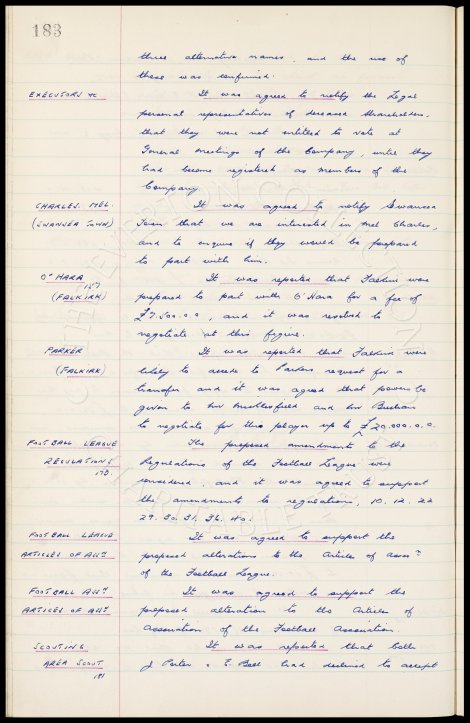 183
three alternative names, and the use of
these was confirmed.
EXECUTORS &c
It was agreed to notify the Legal
personal representatives of deceased shareholders,
that they were not entitled to vote at
General meetings of the Company, until they
had become registered as members of the
Company.
CHARLES. MEL.
It was agreed to notify Swansea
(SWANSEA TOWN)
Town that we are interested in Mel Charles,
and to enquire if they would be prepared
to part with him.
O'HARA
It was reported that Falkirk were
(FALKIRK)
prepared to part with O'Hara for a fee of
£7.500.0.0, and it was resolved to
negotiate at this figure.
PARKER
It was reported that Falkirk were
(FALKIRK)
likely to accede to Parkers request for a
transfer and it was agreed that powers be
given to Mr Micklesfield and Mr Buchan
to negotiate for this player up to £20.000.0.0.
FOOTBALL LEAGUE
The proposed amendments to the
REGULATIONS
Regulations of the Football League were
considered, and it was agreed to support
the amendments to regulations, 10. 12. 22
29. 30. 31. 36. 40.
FOOTBALL LEAGUE
It was agreed to support the
ARTICLES OF ASSN
proposed alterations to the Articles of Assocn
of the Football League.
FOOTBALL ASSN
It was agreed to support the
ARTICLES OF ASSN
proposed alteration to the Articles of
Association of the Football Association.
SCOUTING
It was reported that both
AREA SCOUT
J. Porter & E. Bell had declined to accept